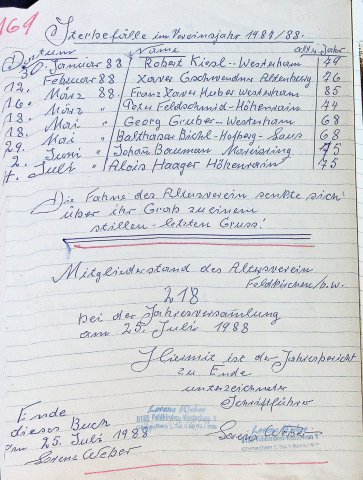 169 Sterbefälle im Vereinsjahr 1987/88.
Datum Name Alter Jahr
30. Januar 88 Robert Kiesl - Westerham 79
12. Februar 88 Xaver Gschwendner Altenburg 76
16. März 88 Franz Xaver Huber Westerham 85
18. März " Peter Feldschmid - Höhenrain 74
18. Mai " Georg Gruber - Westerham 68
29. Mai " Balthasar Bichl - Hofberg - Saus 68
2. Juni " Johann Baumann 75
Juli " Alois Haager Höhenrain 75
Die Fahne des Altersverein senkte sich
über ihr Grab zu einem
stillen - letzten Gruss!
Mitgliederstand des Altersverein
Feldkirchen/b.W.
218
bei der Jahresversamlung
am 25. Juli 1988
Hiermit ist der Jahresbericht
zu Ende
unterzeichneter
Schriftführer
Lorenz Weber
8152 Feldkirchen-Westerham 1
Lorenz Weber
Ende
dieses Buch
am 25. Juli 1988
Lorenz Weber